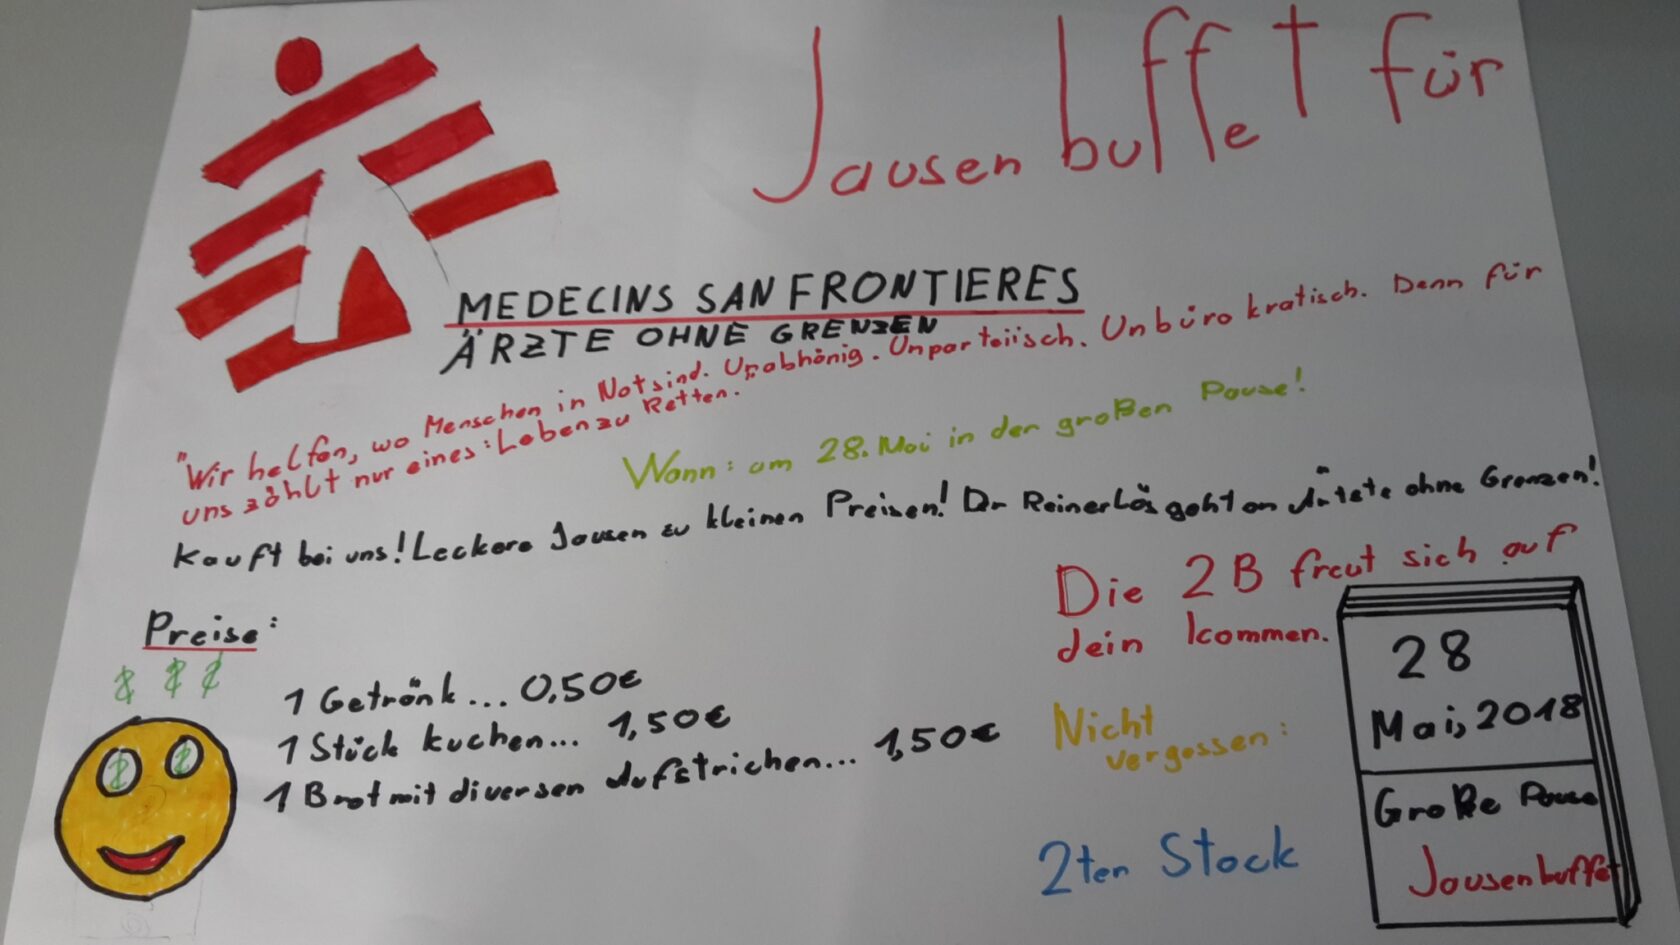 Jausenbuffet für
MEDECINS SAN FRONTIERES
ÄRZTE OHNE GRENZEN
"Wir helfen, wo Menschen in Not sind. Unabhänig. Unparteiisch. Unbürokratisch. Denn für
uns zählt nur eines: Leben zu Retten."
Wann: am 28. Mai in der großen Pause!
Kauft bei uns! Leckere Jausen zu kleinen Preisen! Dr Reinerlös geht an Ärtzte ohne Grenzen!
Die 2B freut sich auf
dein kommen.
Preise:
1 Getränk... 0,50€
1 Stück kuchen... 1,50€
1 Brot mit diversen Aufstrichen... 1,50€
Nicht
vergessen:
2ten Stock
28
Mai, 2018
Große Pause
Jausenbuffet